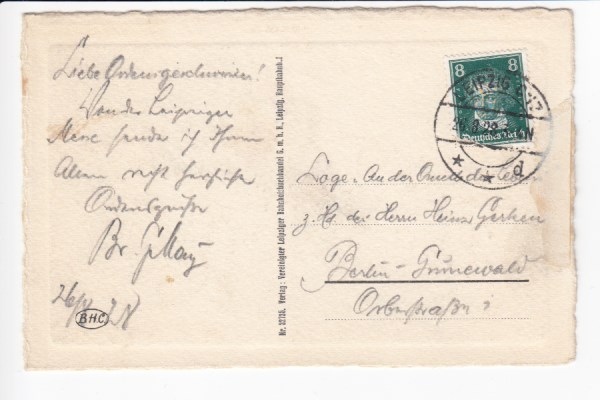 Liebe Ordensgeschwister!
Von der Leipziger
Messe sende ich Ihnen
Allen recht herzliche
Ordensgrüße
Br. G. May
26/
BHC
Nr. 12718. Verlag: Vereinigter Leipziger Bahnhofsbuchhandel G. m. b. H., Leipzig, Hauptbahnh.
8 8
Deutsches Reich
LEIPZIG
d
Loge "An der des Lebens
z. Hd. des Herrn Heinz Gerken
Berlin-Grunewald